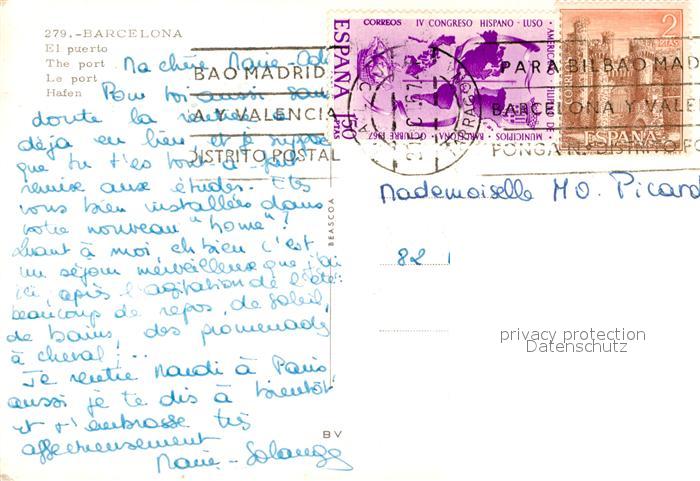 279.-BARCELONA
El puerto
The port
Le port
Hafen
Ma chère Marie-Odi
Pour toi aussi san
doute la rentrée
déjà eu lieu, et je suppose
que tu t'es tout à fait
remise aux études. Etes
vous bien installées dans
votre nouveau "home"?
Quant à moi, eh bien c'est
un séjour merveilleux que j'ai
ici, après l'agitation de l'été:
beaucoup de repos, de soleil,
de bains, des promenades
à cheval...
Je rentre Mardi à Paris
aussi je te dis à bientôt
et t'embrasse très
affectueusement
Marie-Solange
BEASCOA
BV
CORREOS
IV CONGRESO HISPANO-LUSO
AMERICANO FILIPINO DE
MUNICIPIOS
BARCELONA - OCTUBRE 1967
ESPAÑA
1'50
PTAS
2
PTAS
CORREOS
ESPAÑA
BAO MADRID
A Y VALENCIA
DISTRITO POSTAL
PARA BILBAO MAD
BARCELONA Y VALE
PONGA N. DISTRITO PO
Mademoiselle MO. Picard
82
privacy protection
Datenschutz